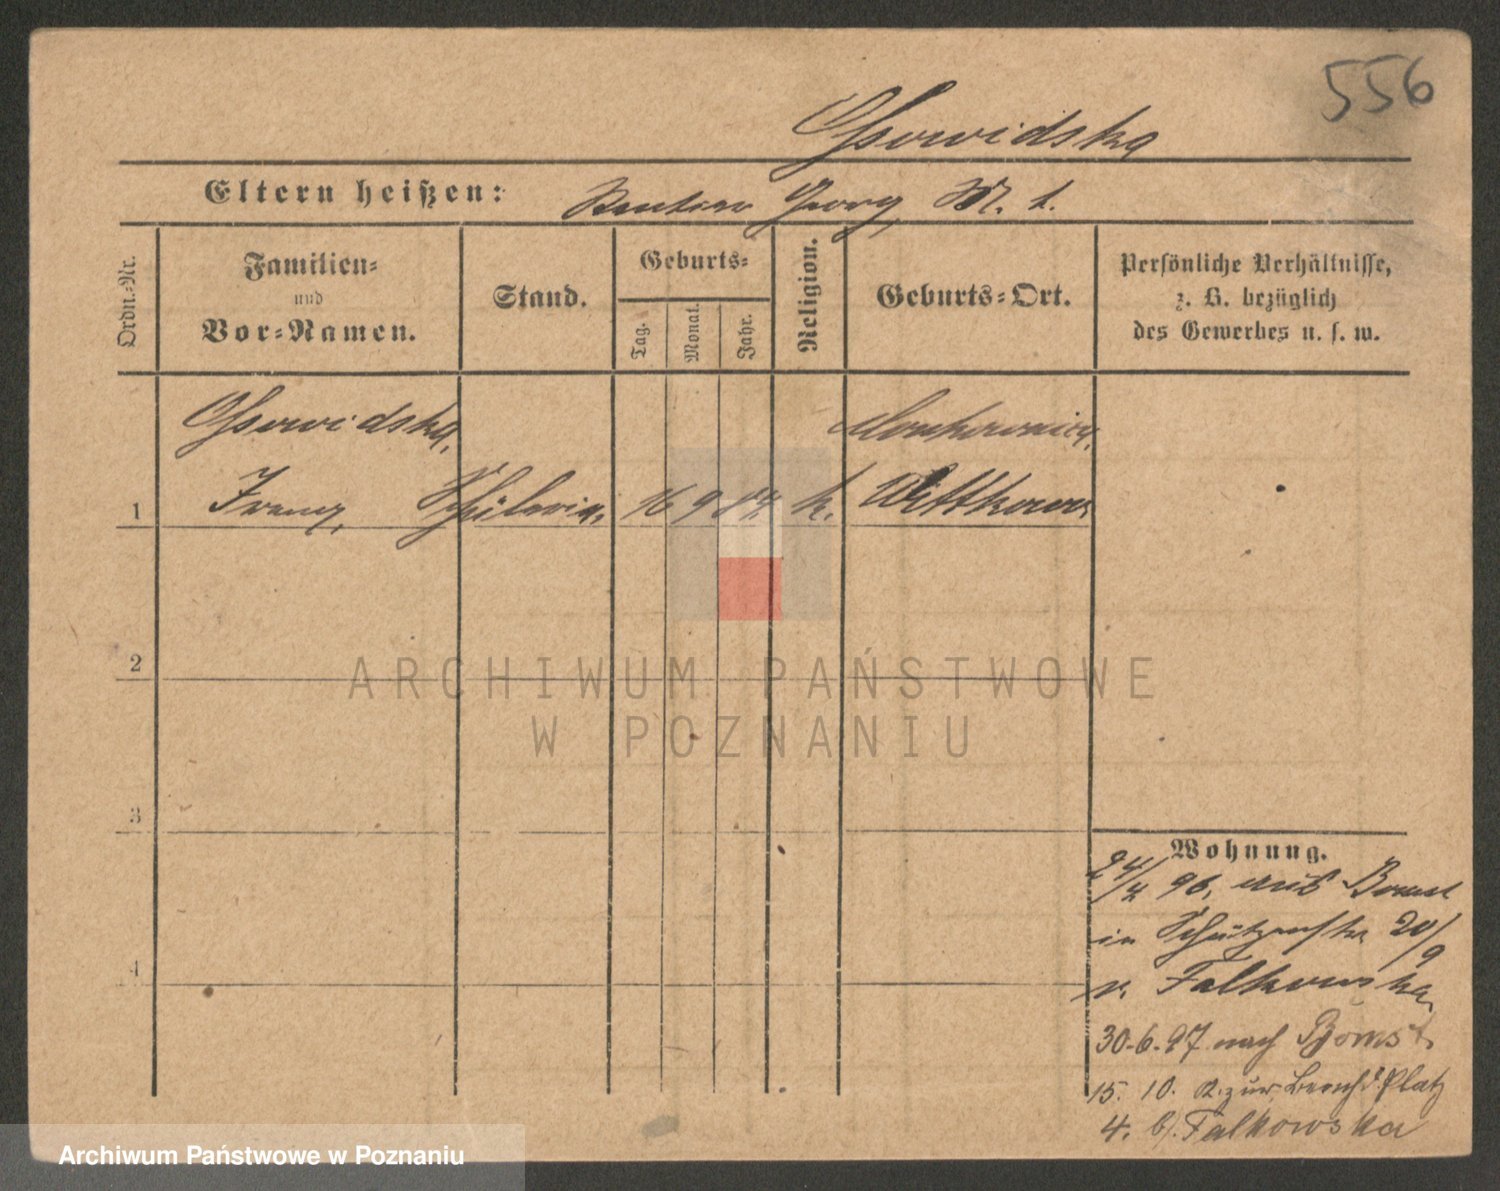 556
Ossowidska
Eltern heißen: Rentier Georg, M. t.
Ordn.-Nr.
Familien-
und
Vor-Namen.
Stand.
Geburts-
Tag.
Monat.
Jahr.
Religion.
Geburts-Ort.
Persönliche Verhältnisse,
z. B. bezüglich
des Gewerbes u. s. w.
Ossowidska,
1 Irena, Schülerin, 16 9 k. Wittkowo
2
3
4
ARCHIWUM PAŃSTWOWE
W POZNANIU
Wohnung.
24/4 96, aus Bomst
in Schützenstr 20/9
v. Falkowska
30.6.97 nach Bomst
15. 10. R. zur Platz
4. b/. Falkowska
Archiwum Państwowe w Poznaniu